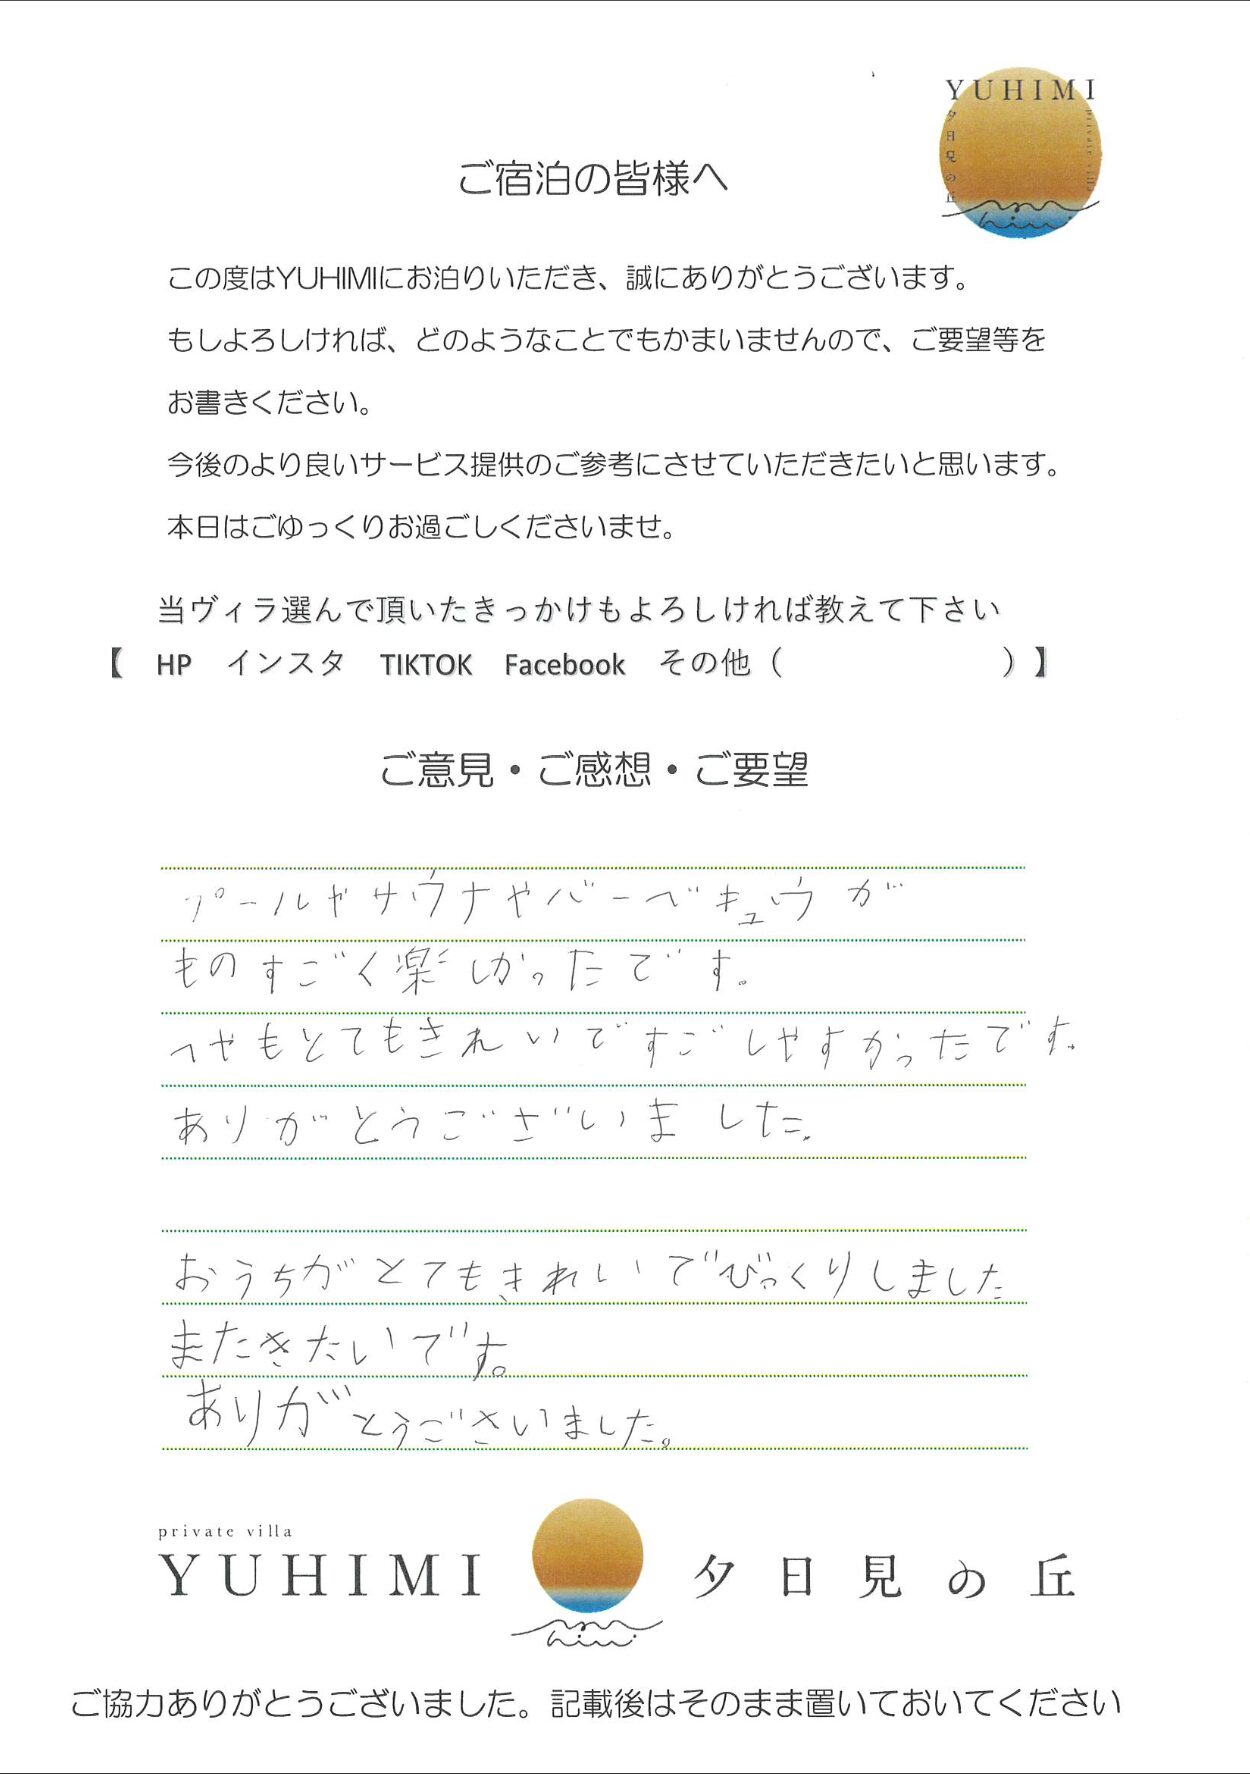 YUHIMI
夕日見の丘
private villa
ご宿泊の皆様へ
この度はYUHIMIにお泊りいただき、誠にありがとうございます。
もしよろしければ、どのようなことでもかまいませんので、ご要望等を
お書きください。
今後のより良いサービス提供のご参考にさせていただきたいと思います。
本日はごゆっくりお過ごしくださいませ。
当ヴィラ選んで頂いたきっかけもよろしければ教えて下さい
【 HP インスタ TIKTOK Facebook その他（ ）】
ご意見・ご感想・ご要望
プールやサウナやバーベキュウが
ものすごく楽しかったです。
へやもとてもきれいですごしやすかったです。
ありがとうございました。
おうちがとてもきれいでびっくりしました
またきたいです。
ありがとうごさいました。
private villa
YUHIMI 夕日見の丘
ご協力ありがとうございました。記載後はそのまま置いておいてください